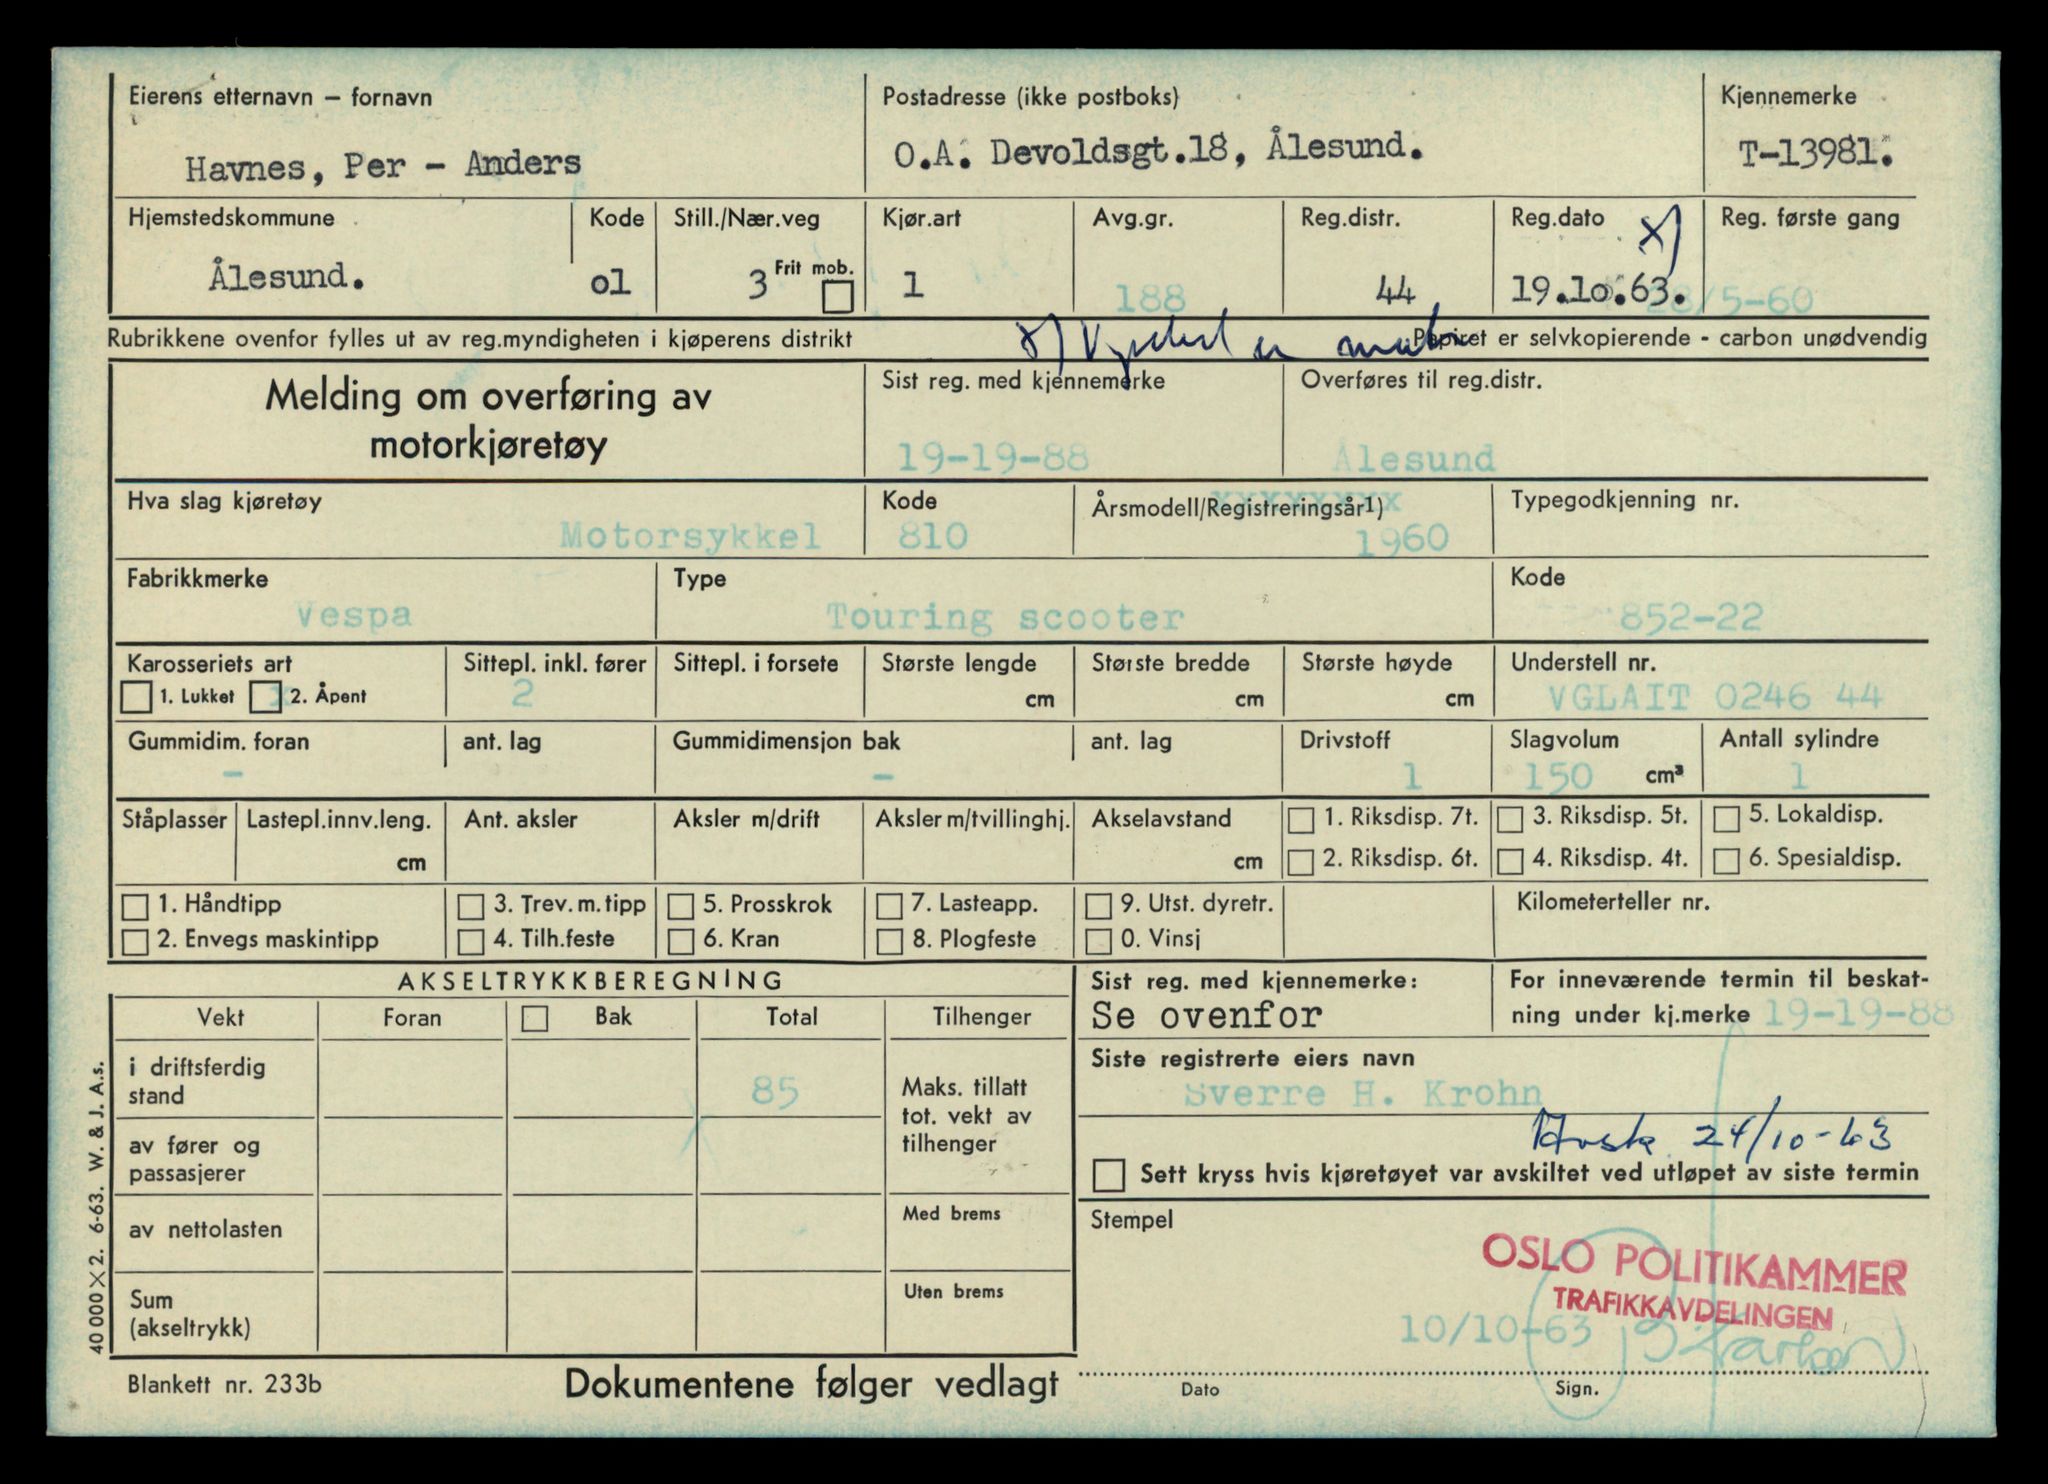 Eierens etternavn – fornavn
Havnes, Per - Anders
Postadresse (ikke postboks)
O.A. Devoldsgt.18, Ålesund.
Kjennemerke
T-13981.
Hjemstedskommune
Ålesund.
Kode
o1
Still./Nær.veg
3 Frit mob.
Kjør.art
1
Avg.gr.
188
Reg.distr.
44
Reg.dato x)
19.10.63.
Reg. første gang
28/5-60
Rubrikkene ovenfor fylles ut av reg.myndigheten i kjøperens distrikt
x)
Papiret er selvkopierende - carbon unødvendig
Melding om overføring av
motorkjøretøy
Sist reg. med kjennemerke
19-19-88
Overføres til reg.distr.
Ålesund
Hva slag kjøretøy
Motorsykkel
Kode
810
Årsmodell/Registreringsår1)
xxxxxxxx
1960
Typegodkjenning nr.
Fabrikkmerke
Vespa
Type
Touring scooter
Kode
852-22
Karosseriets art
1. Lukket x 2. Åpent
Sittepl. inkl. fører
2
Sittepl. i forsete
Største lengde
cm
Største bredde
cm
Største høyde
cm
Understell nr.
VGLAIT 0246 44
Gummidim. foran
-
ant. lag
Gummidimensjon bak
-
ant. lag
Drivstoff
1
Slagvolum
150 cm³
Antall sylindre
1
Ståplasser
Lastepl.innv.leng.
cm
Ant. aksler
Aksler m/drift
Aksler m/tvillinghj.
Akselavstand
cm
1. Riksdisp. 7t.
2. Riksdisp. 6t.
3. Riksdisp. 5t.
4. Riksdisp. 4t.
5. Lokaldisp.
6. Spesialdisp.
1. Håndtipp
2. Envegs maskintipp
3. Trev. m. tipp
4. Tilh.feste
5. Prosskrok
6. Kran
7. Lasteapp.
8. Plogfeste
9. Utst. dyretr.
0. Vinsj
Kilometerteller nr.
AKSELTRYKKBEREGNING
Vekt Foran Bak Total Tilhenger
i driftsferdig
stand
85
av fører og
passasjerer
av nettolasten
Sum
(akseltrykk)
Maks. tillatt
tot. vekt av
tilhenger
Med brems
Uten brems
Sist reg. med kjennemerke:
Se ovenfor
For inneværende termin til beskat-
ning under kj.merke 19-19-88
Siste registrerte eiers navn
Sverre H. Krohn
24/10-63
Sett kryss hvis kjøretøyet var avskiltet ved utløpet av siste termin
Stempel
OSLO POLITIKAMMER
TRAFIKKAVDELINGEN
10/10-63
Dato
Sign.
Blankett nr. 233b
Dokumentene følger vedlagt
40 000 × 2. 6-63. W. & J. A.s.